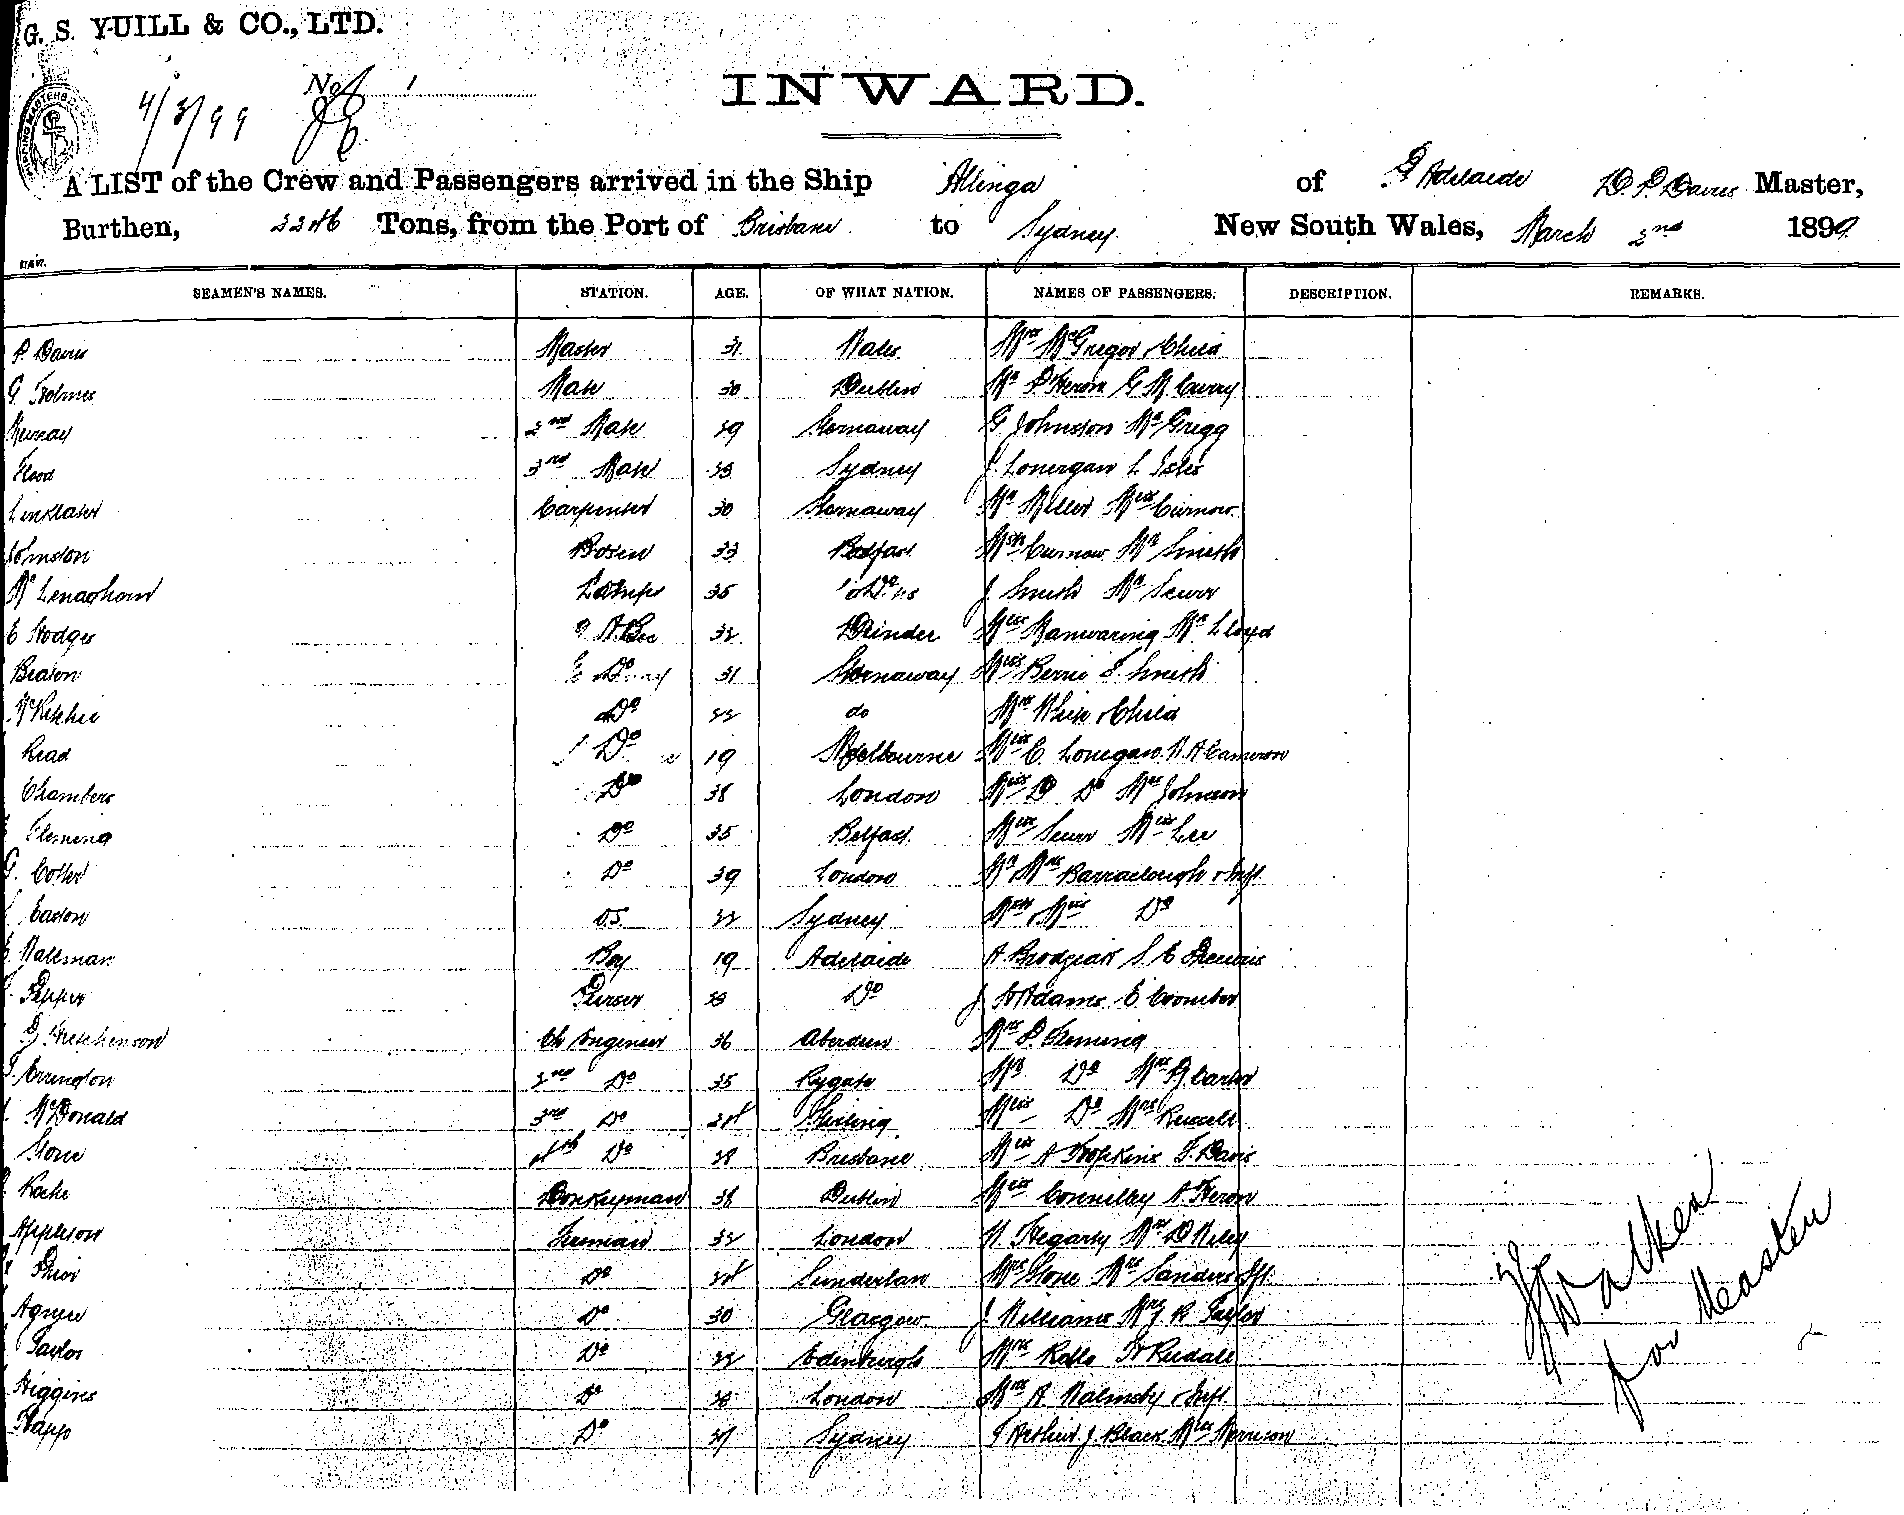 G. S. YUILL & CO., LTD.
4/3/99 No. 1
INWARD.
A LIST of the Crew and Passengers arrived in the Ship Allinga of Pt Adelaide D. P. Davies Master,
Burthen, Tons, from the Port of Brisbane to Sydney New South Wales, March 2nd 1899
SEAMEN'S NAMES. STATION. AGE. OF WHAT NATION. NAMES OF PASSENGERS. DESCRIPTION. REMARKS.
P. Davies Master 31 Wales Mrs McGregor & Child
G Holmes Mate 30 Dublin Mr P Heron G McCurry
Murray 2nd Mate 29 Stornaway G. Johnston Mr Grigg
Flood 3rd Mate Sydney J. Lonergan L Isles
Linklater Carpenter 30 Stornaway Mr Miller Miss Curnow
Johnston Bosen 33 Belfast Curnow Mr Smith
McLenaghan Lamps 35 Do J. Smith Mr Scurr
E Hodges A.B. 32 Miss Manwaring Mr Lloyd
Beaton Do 31 Stornaway Miss Berrie F. Smith
McRitchie Do 22 do Mrs White & Child
Read Do 19 Melbourne Miss C. Lonegan A Cameron
Chambers Do 38 London Miss D Do Mrs Johnson
Fleming Do 35 Belfast Miss Scurr Miss Lee
G. Cotter Do 39 London Mr Mrs Barraclough & Inft
Easton OS 22 Sydney Miss Do
Waltman Boy 19 Adelaide A Brodziak S. E
Pepper Purser Do J Adams E Coomber
Stephenson Ch Engineer 36 Aberdeen Mrs P. Fleming
Errington 2nd Do 35 Rygate Mr Do Mrs Carter
McDonald 3rd Do Stirling Miss Do Mrs Russell
Stone 4th Do 28 Brisbane Miss A Hopkins F. Davis
Roche Donkeyman 38 Dublin Miss Connelley A. Heron
Appleton Fireman 32 London Hegarty Mrs D Riley
Prior Do Sunderlan Mrs Stone Mrs Sanders Ift.
Agnew Do 30 Glasgow J Williams R Taylor
Taylor Do Edinburgh Mrs Rolls
Higgins Do London Mrs A Walmsby & Inft
Rapp Do Sydney F Arthur J. Black Miss Morrison
J Walker
for Master